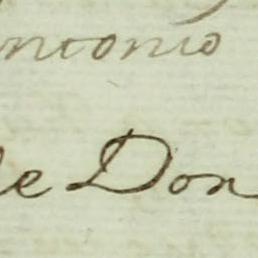 ntonio
e Don